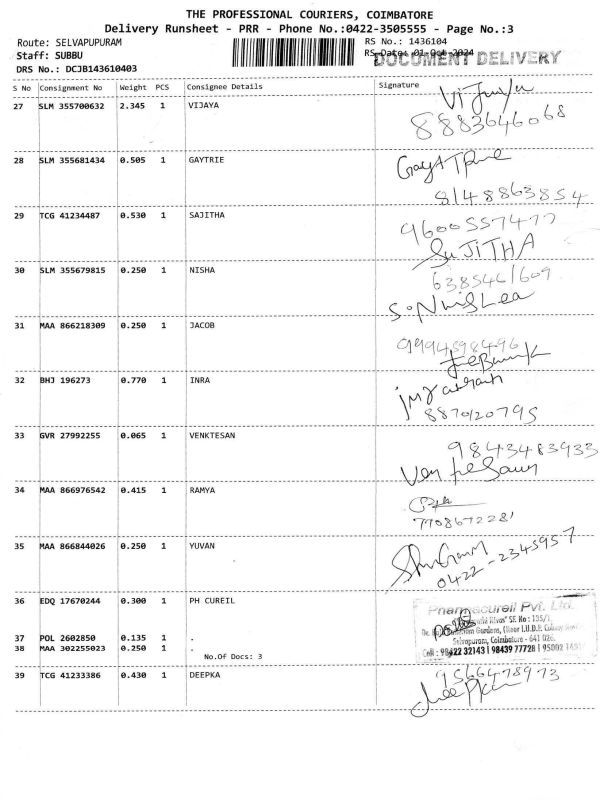 THE PROFESSIONAL COURIERS, COIMBATORE
Delivery Runsheet - PRR - Phone No.:0422-3505555 - Page No.:3
Route: SELVAPUPURAM
RS No.: 1436104
Staff: SUBBU
RS Date: 01-Oct-2024
DOCUMENT DELIVERY
DRS No.: DCJB143610403
S No Consignment No Weight PCS Consignee Details Signature
27 SLM 355700632 2.345 1 VIJAYA
8883646068
28 SLM 355681434 0.505 1 GAYTRIE
8148863854
29 TCG 41234487 0.530 1 SAJITHA
9600557477
SuJITHA
30 SLM 355679815 0.250 1 NISHA
6385461609
31 MAA 866218309 0.250 1 JACOB
9994598496
32 BHJ 196273 0.770 1 INRA
8870120795
33 GVR 27992255 0.065 1 VENKTESAN
9843483933
34 MAA 866976542 0.415 1 RAMYA
7708672281
35 MAA 866844026 0.250 1 YUVAN
0422-2345957
36 EDQ 17670244 0.300 1 PH CUREIL
Pharmacureil Pvt. Ltd.
SF No : 135/1,
Gardens, (Near I.U.D.P. Colony
Selvapuram, Coimbatore - 641 026.
Cell : 98422 32143 | 98439 77728 | 95002
37 POL 2602850 0.135 1 .
38 MAA 302255023 0.250 1 .
No.Of Docs: 3
39 TCG 41233386 0.430 1 DEEPKA
7566478973